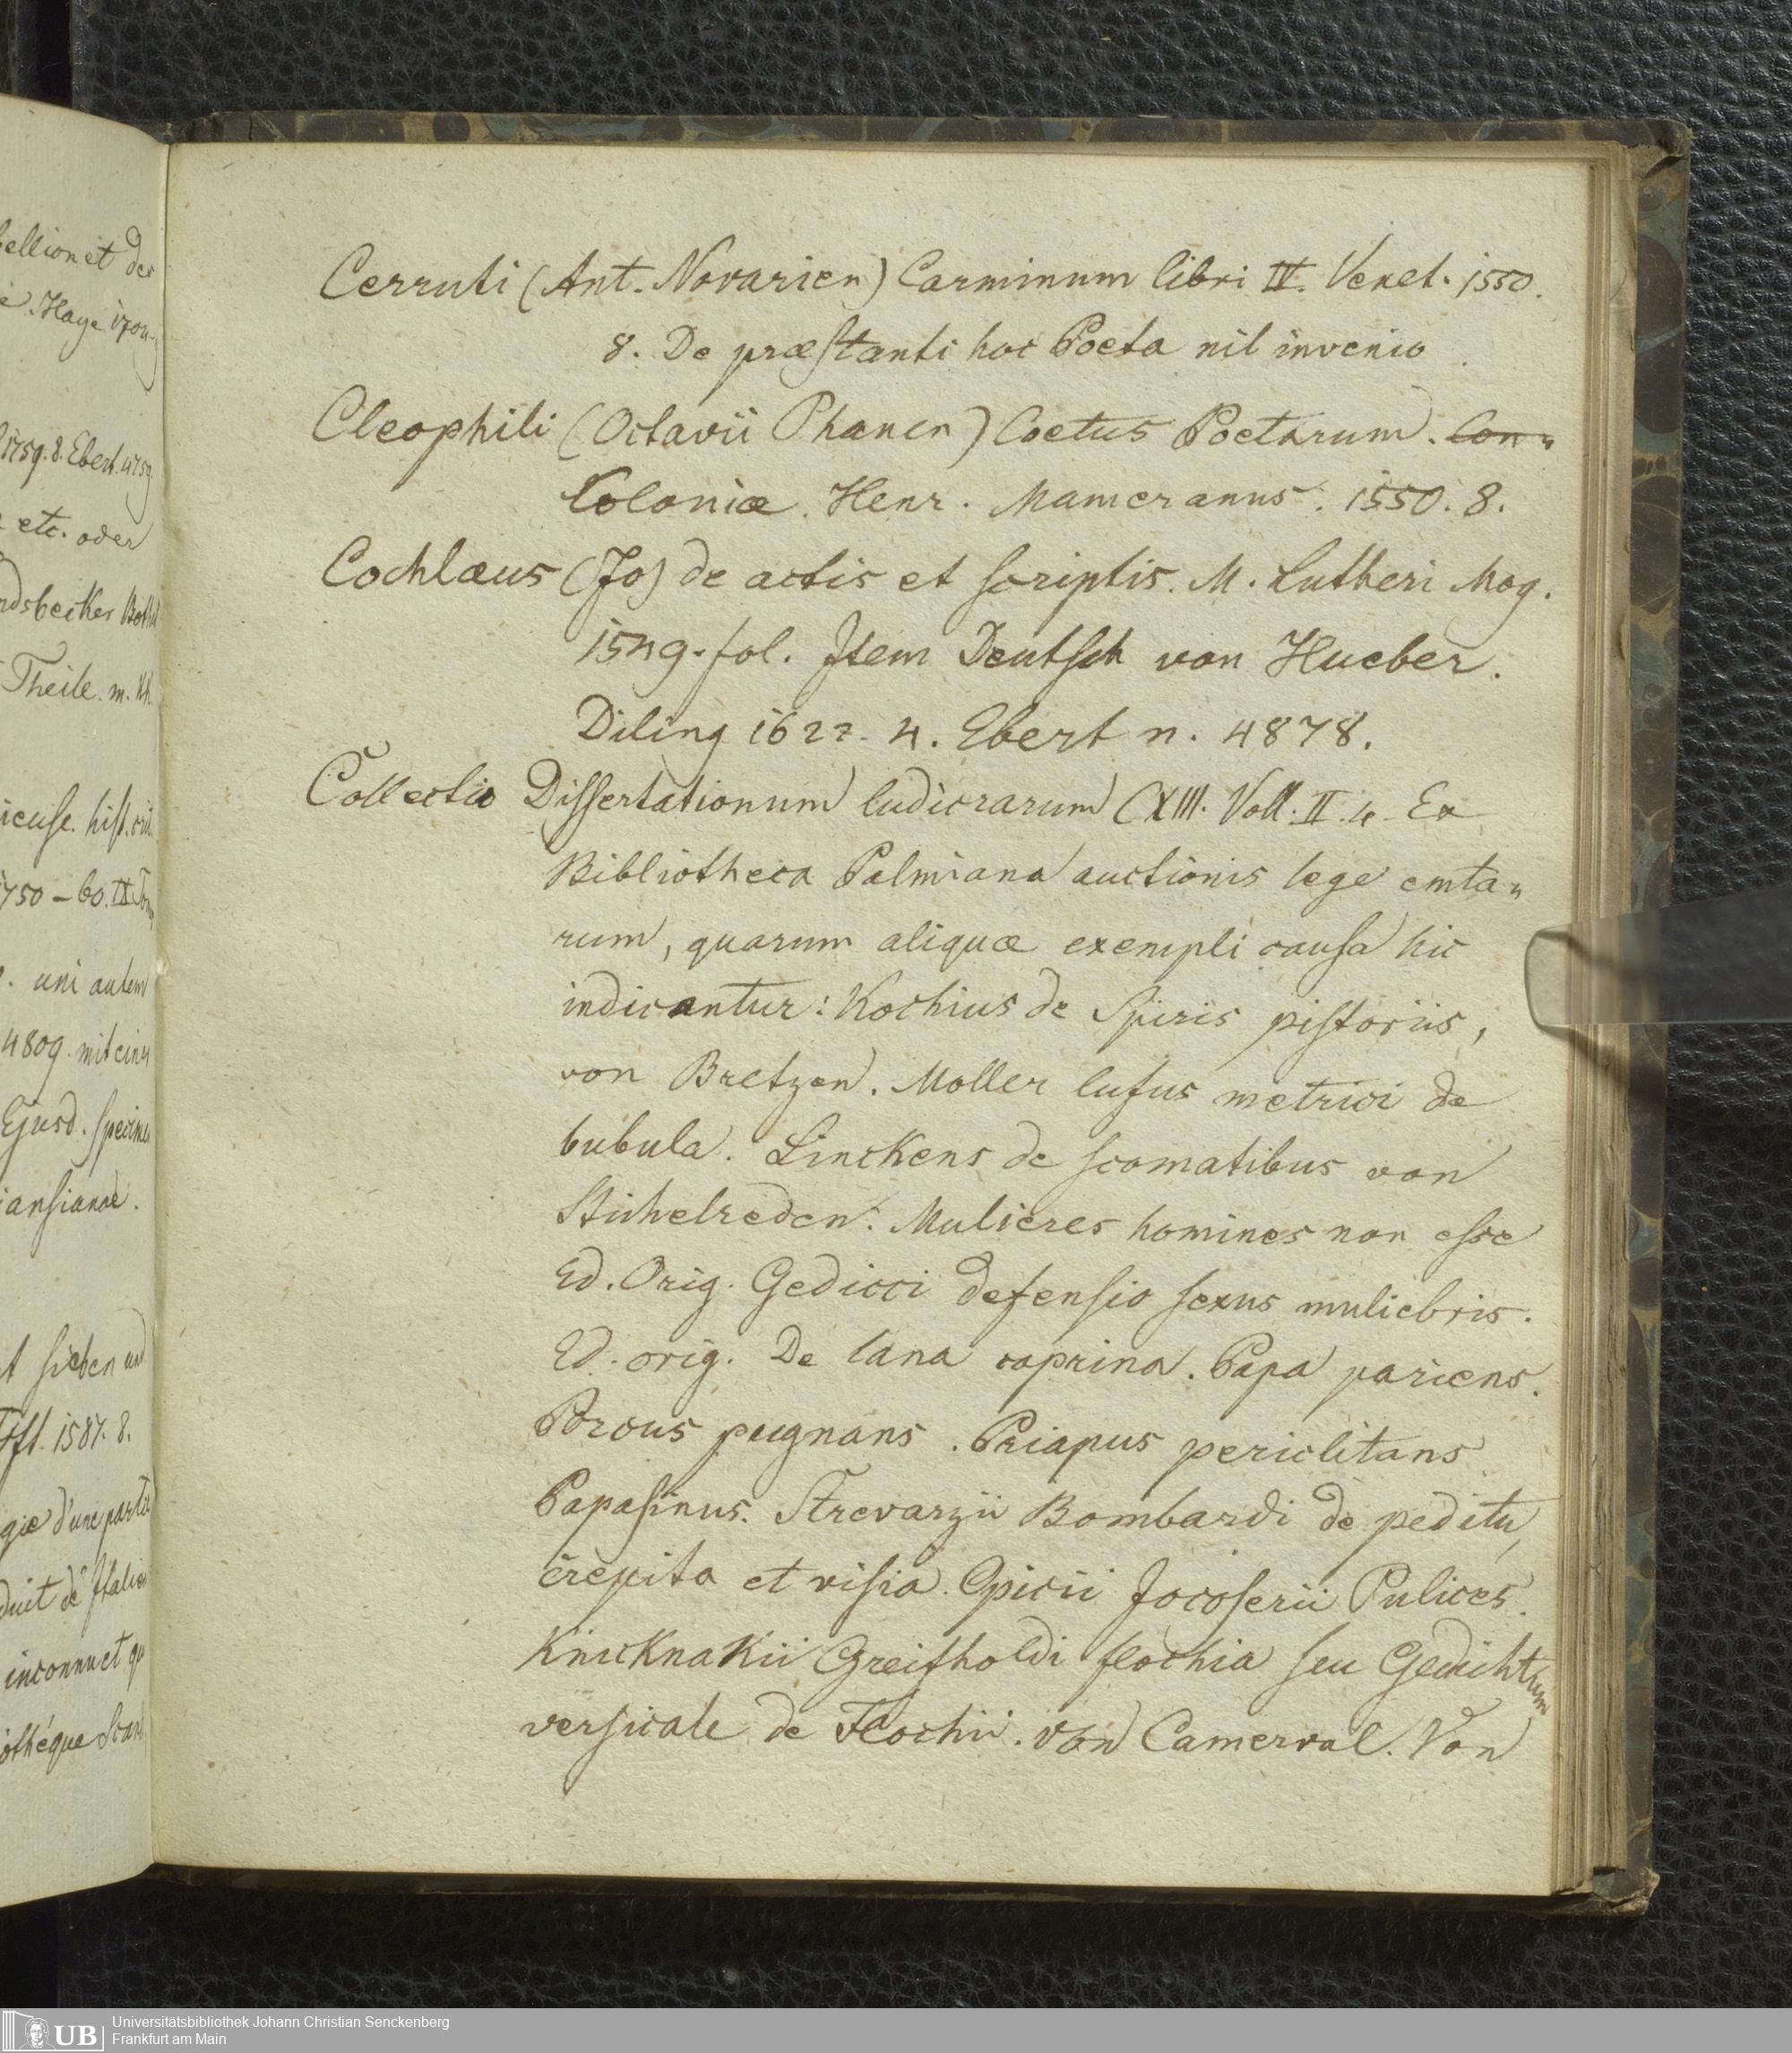 bellion et des
e. Haye 1701
1759. 8. Ebert. 4759
etc. oder
ndsbecker Both
Theile. m. KK.
icuse. hist. crit.
1750 – 60. IX Tom
. uni autem
4809. mit eine
Ejusd. Specimen
iansianae.
t sieben und
Fft. 1587. 8.
gie d'une partie
duit de Italien
inconnu et qu
iothéque Scar
Cerruti (Ant. Novarien) Carminum libri IV. Venet. 1550.
8. De præstanti hoc Poeta nil invenio.
Cleophili (Octavii Phanen) Coetus Poetarum. Con-
Coloniæ. Henr. Mameranus. 1550. 8.
Cochlæus (Jo) de actis et scriptis. M. Lutheri Mog.
1549. fol. Item Deutsch von Hueber.
Diling 1622. 4. Ebert n. 4878.
Collectio Dissertationum ludicrarum CXIII. Voll. II. 4. Ex
Bibliotheca Palmiana auctionis lege emta-
rum, quarum aliquæ exempli causa hic
indicantur: Kochius de Spiris pistoriis,
von Bretzen. Moller lusus metrici de
bubula. Linckens de scomatibus von
Stichelreden. Mulieres homines non esse
Ed. Orig. Gedicci defensio sexus muliebris.
Ed. orig. De lana caprina. Papa pariens.
Porcus pugnans. Priapus periclitans
Papasinus. Strevarzii Bombardi de peditu,
crepita et visia. Opicii Jocoserii Pulices.
KnickKnakii Greifholdi flochia seu Gedichtum
versicale de Flochii. Von Camerval. Von
UB
Universitätsbibliothek Johann Christian Senckenberg
Frankfurt am Main